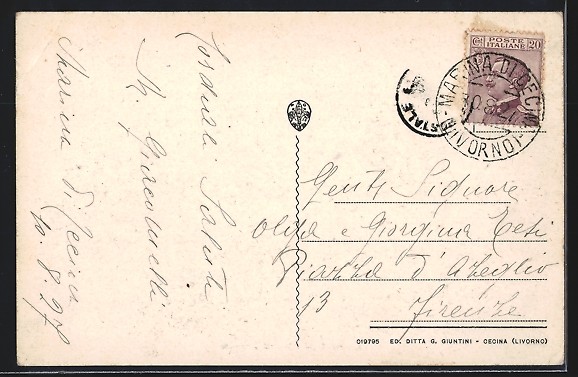 Cordiali Saluti
Marina di Cecina
10.8.27
POSTE
ITALIANE
20
MARINA DI CECINA
(LIVORNO)
STALE
Gent. Signore
Olga e Giorgina Teti
Piazza d'Azeglio
13
Firenze
019795 ED. DITTA G. GIUNTINI - CECINA (LIVORNO)